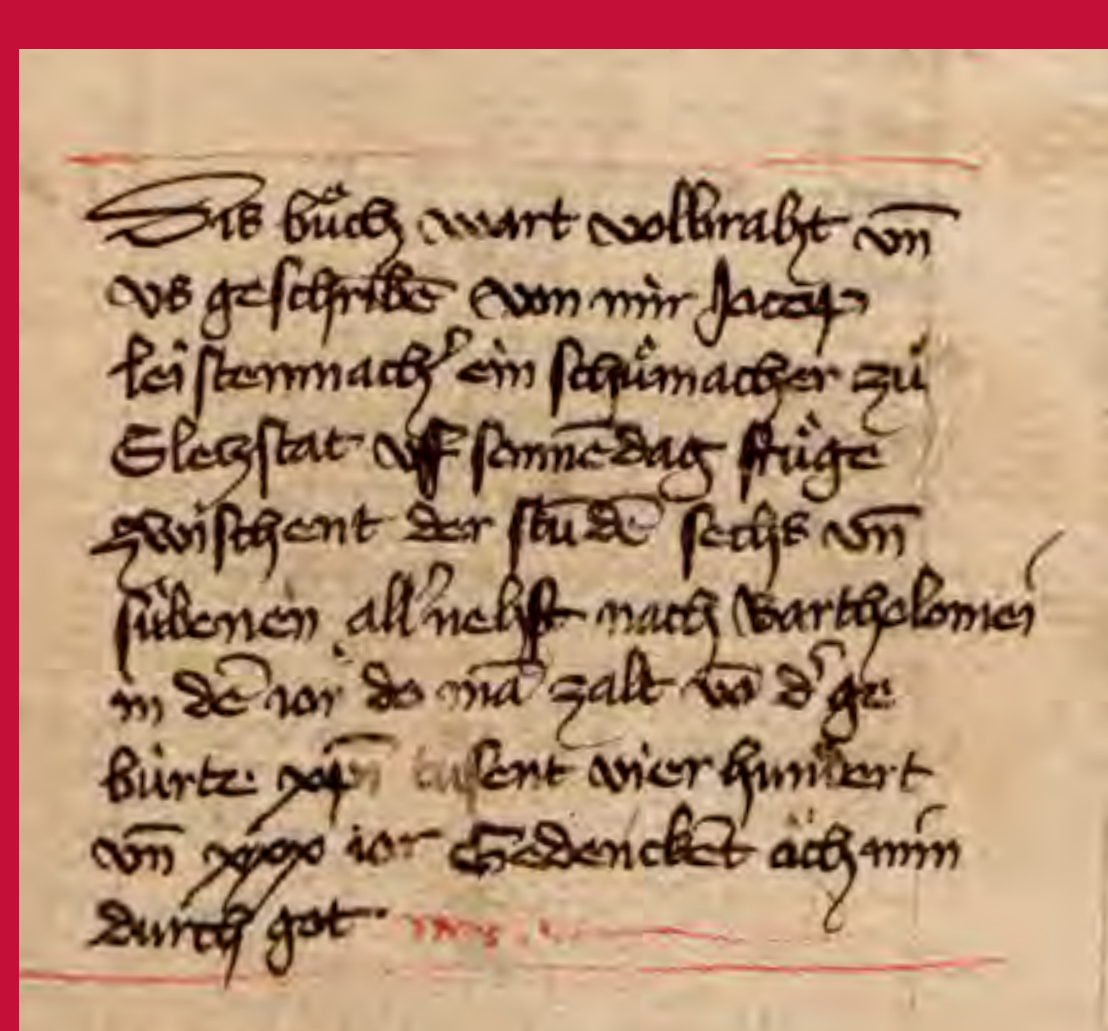 Dis bůch wart vollbraht vn̄
vs geschribē von mir Jacop
leistenmach᾽ ein schůmacher zů
Sletzstat vff sonnēdag frůge
zwischent der stūdē sechs vn̄
sůbenen all᾽nehst nach Bartholomei
in dē ior do mā zalt vō d᾽ ge
bürte xp̄i tusent vier hundert
vn̄ xxx ior Gedenckēt ǒch min
durch got